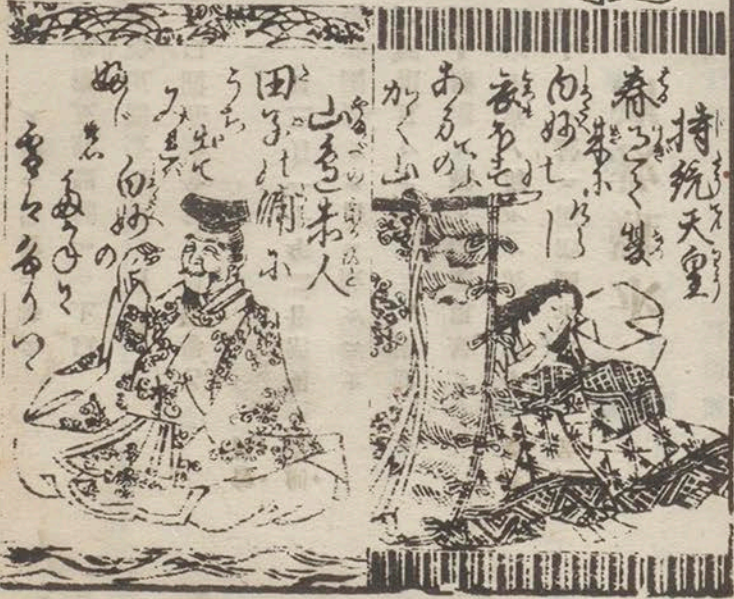 持統天皇
春過て夏
来にけらし
白妙の
衣ほす
てふ
あまの
かく山
山邊赤人
田子の浦に
うち出て
みれば
白妙の
ふじの
たかねに
雪はふりつゝ